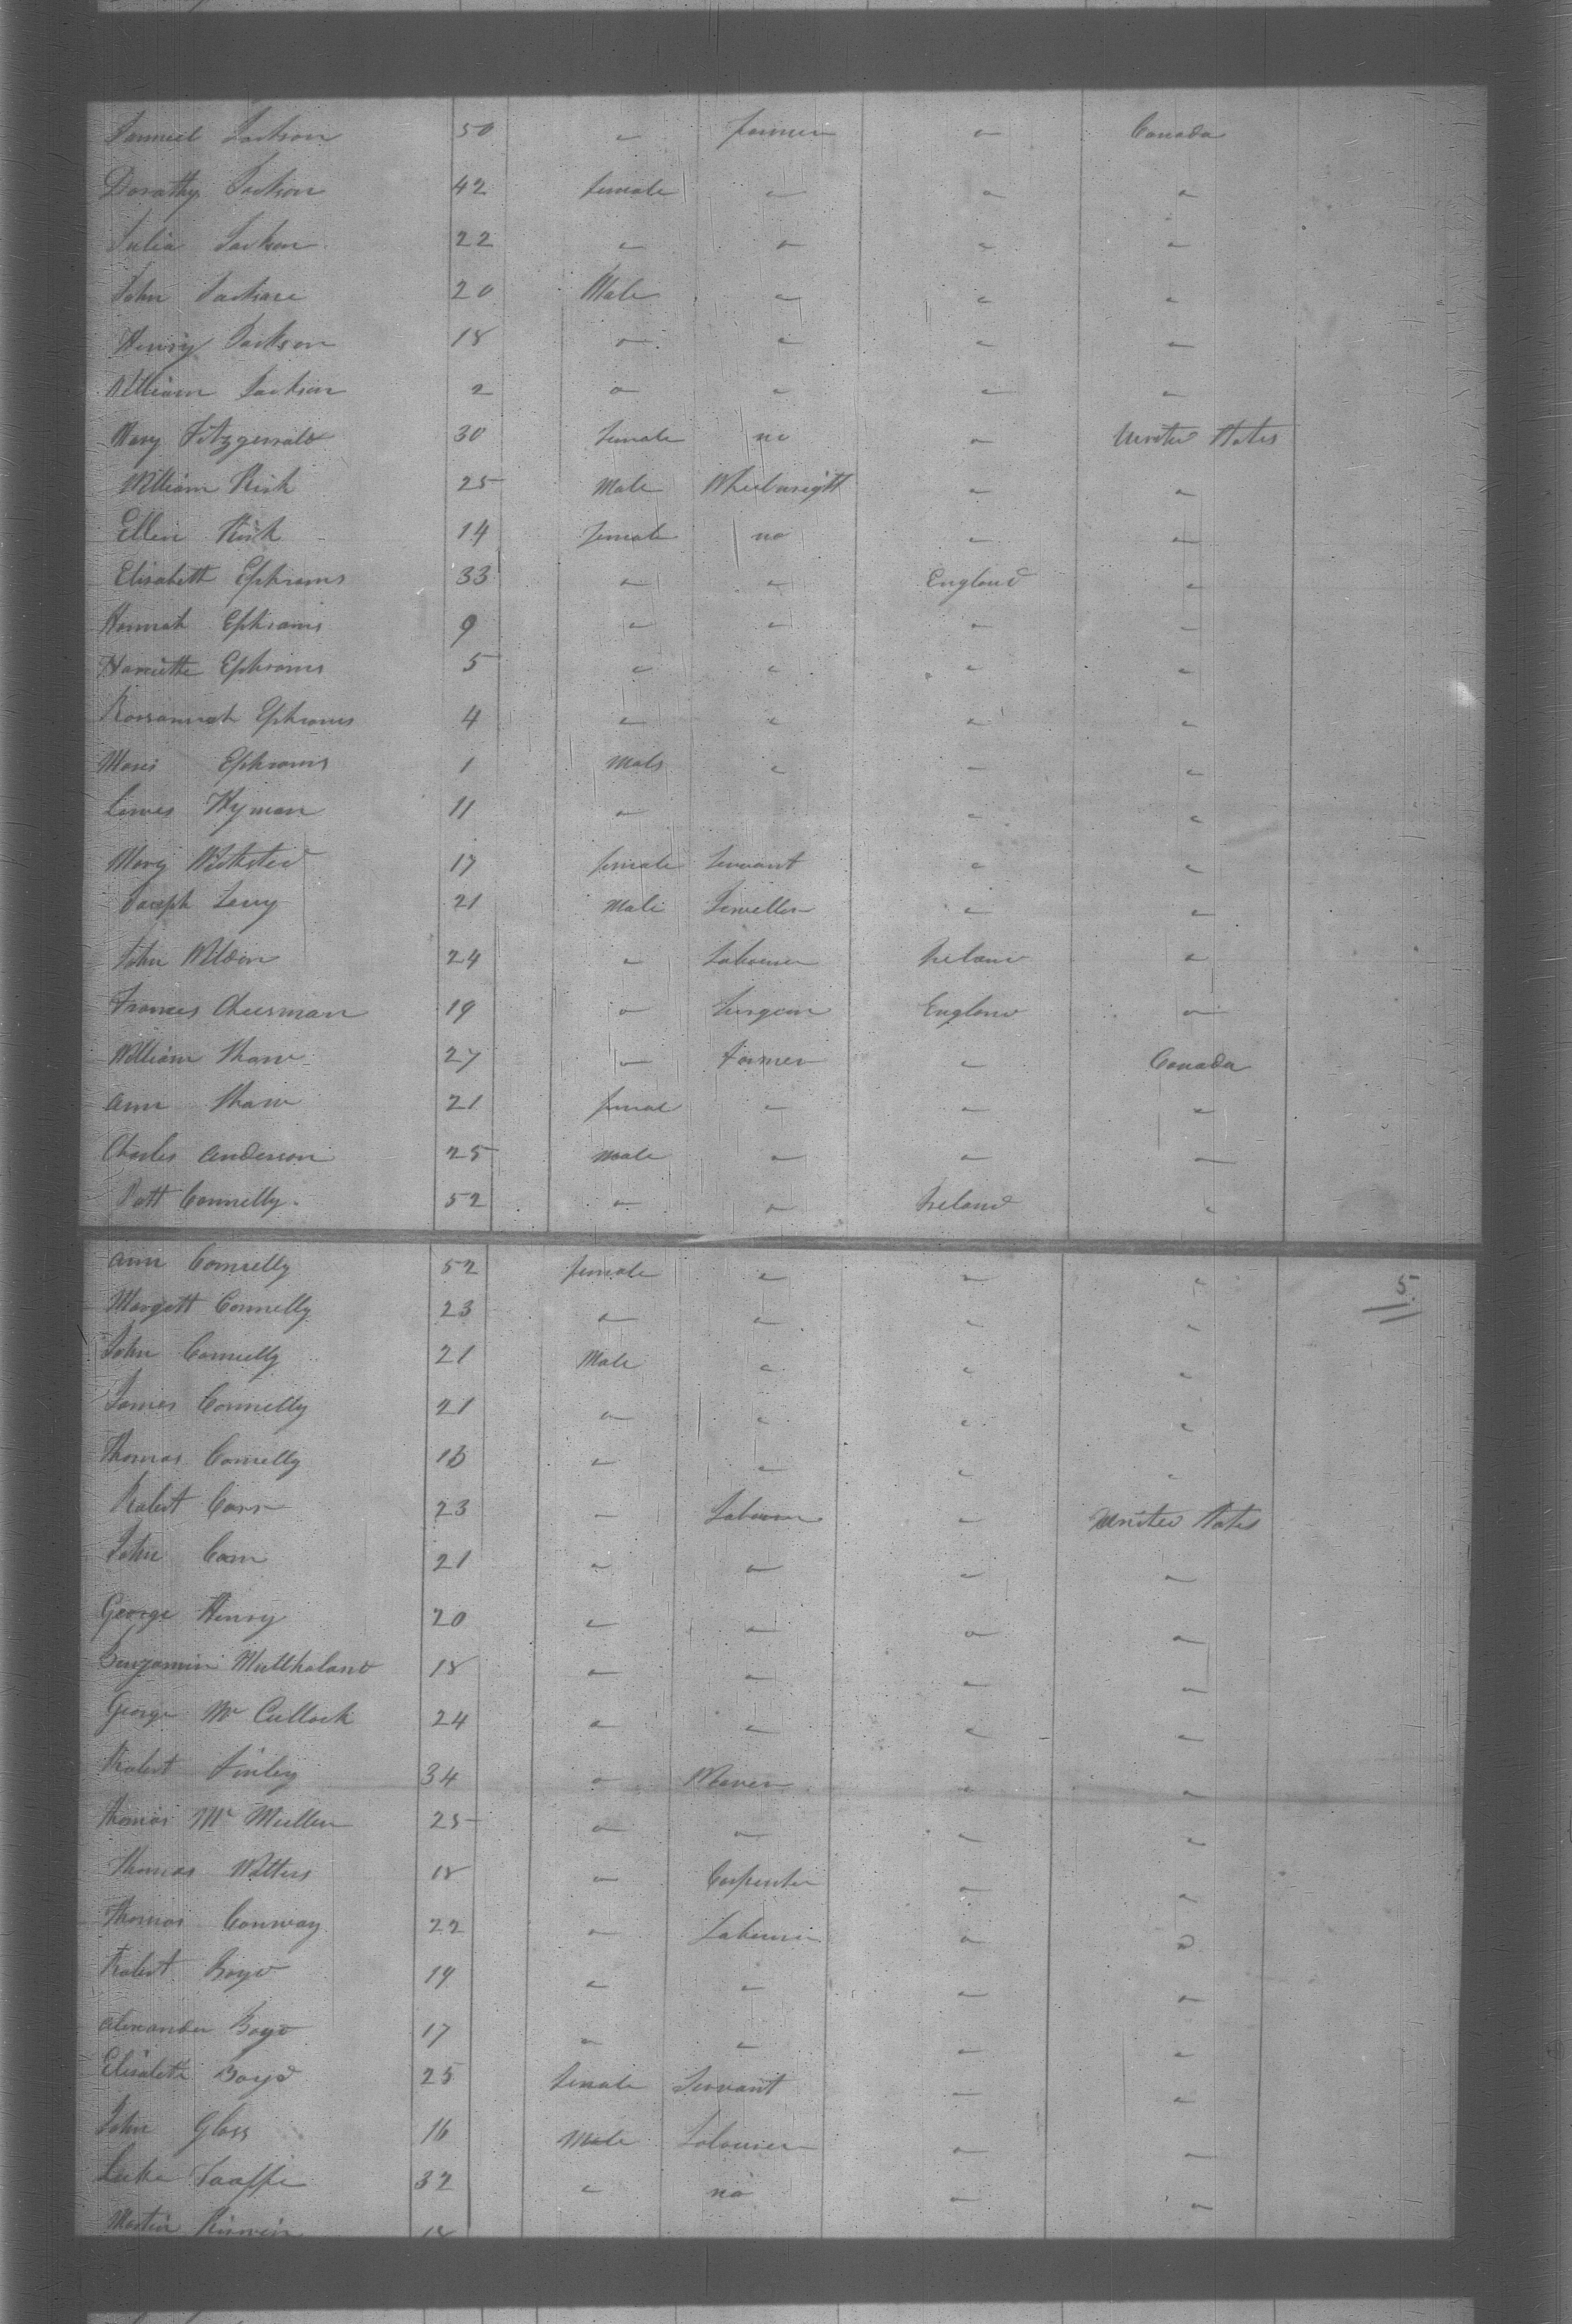 Samuel Jackson 50 " farmer " Canada
Dorathy Jackson 42 female " " "
Julia Jackson 22 " " " "
John Jackson 20 Male " " "
Henry Jackson 18 " " " "
William Jackson 2 " " " "
Mary Fitzgerald 30 female no " United States
William Kirk 25 Male Wheelwright " "
Ellen Kirk 14 female no " "
Elisabeth Ephraims 33 " " England "
Hannah Ephraims 9 " " " "
Harriette Ephraims 5 " " " "
Rossannah Ephraims 4 " " " "
Ephraims 1 Male " " "
Hyman 11 " " "
Mary 17 female Servant " "
Joseph Levy 21 Male Jeweller " "
John 24 " Labourer Ireland "
Frances Cheesman 19 " Surgeon England "
William Shaw 27 " Farmer " Canada
Ann Shaw 21 femal " " "
Charles Anderson 25 Male " " "
Patt Connelly 52 " " Ireland "
Ann Connelly 52 female " " "
5
Margett Connelly 23 " " " "
John Connelly 21 Male " " "
James Connelly 21 " " " "
Thomas Connelly " " " "
Robert Carr 23 " Labourer " United States
John Carr 21 " " " "
George Henry 20 " " " "
Benjamin Mullholand 18 " " " "
George Mc Cullock 24 " " " "
Robert Finley 34 " Weaver " "
Thomas Mc Mullen 25 " " " "
Thomas Watters 18 " Carpenter " "
Thomas Conway 22 " Labourer " "
Robert Boyd 19 " " " "
Alexander Boyd 17 " " " "
Elisabeth Boyd 25 female Servant " "
John Glass 16 Male Labourer " "
Luke Taaffe 32 " no " "
Martin 18